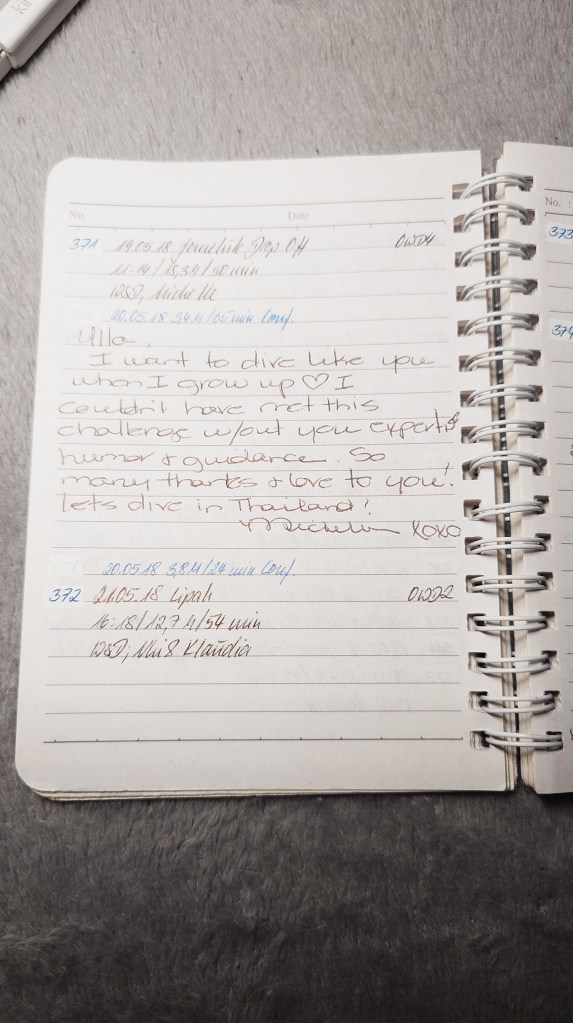 No. :
Date :
No. :
371 19.05.18 Jemeluk Drop Off OWD4
11:14/18,3M/50 min
W&D, Michelle
20.05.18 3,4M/65min Conf.
Ulla,
I want to dive like you
when I grow up ♡ I
couldn't have met this
challenge w/out you expertise
humor & guidance. So
many thanks & love to you!
lets dive in Thailand!
XOXO
20.05.18 3,8M/24 min Conf.
372 21.05.18 Lipah OWD2
16:18/12,7M/54 min
W&D, Klaudia
373
374